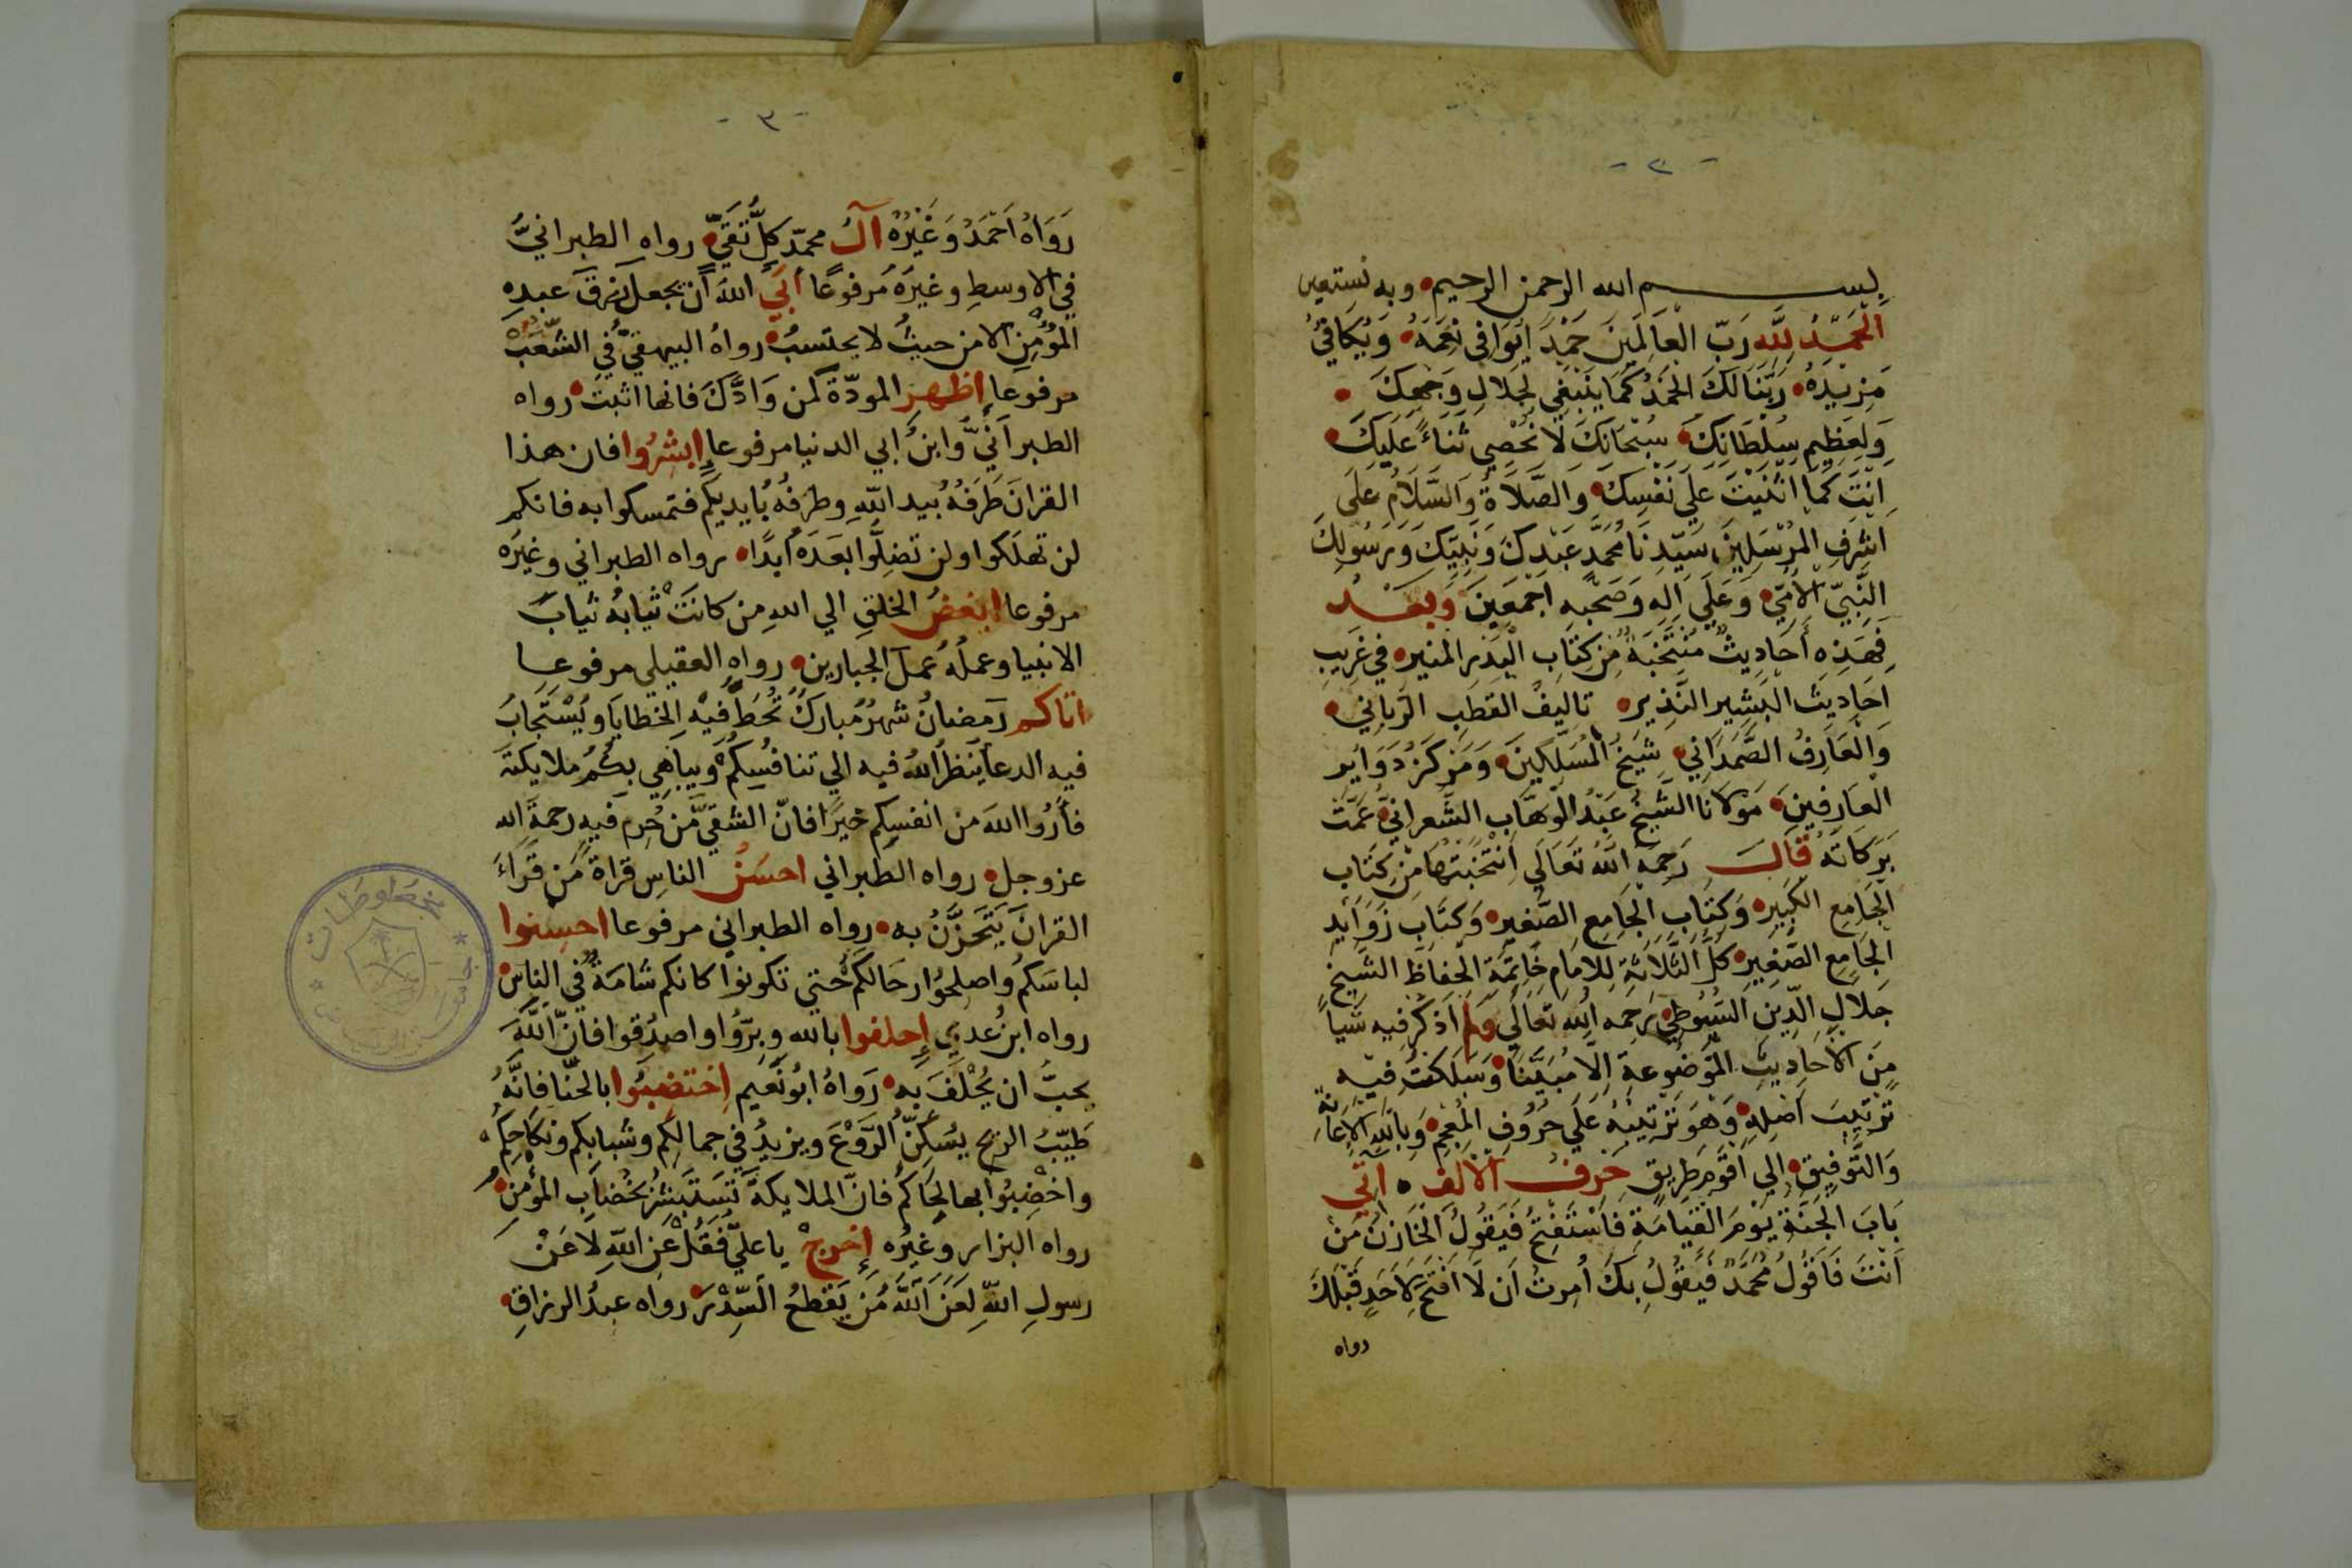 - ٢ -
بسم الله الرحمن الرحيم وبه نستعين
اَلْحَمْدُ لِلَّهِ رَبِّ الْعَالَمِينَ حَمْدًا يُوَافِي نِعَمَهُ وَيُكَافِئُ
مَزِيْدَهُ رَبَّنَا لَكَ الْحَمْدُ كَمَا يَنْبَغِي لِجَلَالِ وَجْهِكَ
وَلِعَظِيمِ سُلْطَانِكَ سُبْحَانَكَ لَا نُحْصِي ثَنَاءً عَلَيْكَ
اَنْتَ كَمَا اَثْنَيْتَ عَلَي نَفْسِكَ وَالصَّلَاةُ وَالسَّلَامُ عَلَى
اَشْرَفِ الْمُرْسَلِينَ سَيِّدِنَا مُحَمَّدٍ عَبْدِكَ وَنَبِيِّكَ وَرَسُولِكَ
النَّبِيِّ الْاُمِّيِّ وَعَلَي اٰلِهِ وَصَحْبِهِ اَجْمَعِينَ وَبَعْدُ
فَهَذِهِ أَحَادِيثُ مُنْتَخَبَةٌ مِنْ كِتَابِ الْبَدْرِ المنير في غَرِيبِ
احَادِيثِ الْبَشِيرِ النَّذِيرِ تاليفُ القطبِ الرباني
وَالْعَارِفُ الصَّمَدَانِي شَيْخُ الْمُسَلِّكِينَ وَمَرْكَزُ دَوَايِرِ
الْعَارِفِينَ مَوْلَانَا الشَّيْخُ عَبْدُ الْوَهَّابِ الشَّعْرَانِيُّ عَمَّتْ
بَرَكَاتُهُ قَالَ رَحِمَهُ اللهُ تَعَالَي اِنْتَخَبْتُهَا مِنْ كِتَابِ
الْجَامِعِ الْكَبِيرِ وَكِتَابِ الْجَامِعِ الصَّغِيرِ وَكِتَابِ زَوَايِدِ
الْجَامِعِ الصَّغِيرِ كُلُّ الثَّلَاثَةِ لِلاِمَامِ خَاتِمَةِ الْحُفَاظِ الشَّيْخِ
جَلَالِ الدِّينِ السُّيُوطِي رَحِمَهُ اللهُ تَعَالَي وَلَمْ اَذْكُرْ فِيهِ شَيْأً
مِنَ الْاَحَادِيثِ الْمَوْضُوعَةِ اِلَّا مُبَيَّنًا وَسَلَكْتُ فِيهِ
تَرْتِيبَ اَصْلِهِ وَهُوَ تَرْتِيبُهُ عَلَي حُرُوفِ الْمُعْجَمِ وَبِاللهِ الْاِعَانَة
وَالتَّوْفِيقِ اِلي اَقْوَمِ طَرِيقٍ حَرفُ الْاَلف اٰتِي
بَابَ الْجَنَّةِ يَوْمَ الْقِيَامَةِ فَاَسْتَفْتِحُ فَيَقُولُ الْخَازِنُ مَنْ
اَنْتَ فَاَقُولُ مُحَمَّدٌ فَيَقُولُ بِكَ اُمِرْتُ اَنْ لَا اَفْتَحَ لِاَحَدٍ قَبْلَكَ
رواه
- ٣ -
رَوَاهُ اَحْمَدُ وَغَيْرُهُ آلُ محمّد كلُّ تَقيّ رواه الطبرانيُّ
في الاوسطِ وغيرَه مرفوعًا أَبَي اللهُ أن يجعلَ رزقَ عبدِهِ
المؤْمِنِ الا من حيثُ لا يحتسبُ رواهُ البيهقيّ في الشُّعَبِ
مرفوعا اظهر المودّةَ لمن وَادَّكَ فانها اثبت رواه
الطبرانيُّ وابنُ ابي الدنيا مرفوعا ابشِرُوا فان هذا
القران طَرَفُهُ بيد اللهِ وطرفُهُ بايديكم فتمسكوا به فانكم
لن تهلكوا ولن تضِلّوا بعدَهُ ابدًا رواه الطبراني وغيرَه
مرفوعا ابغضُ الخلقِ الي اللهِ مَن كانَتْ ثيابُهُ ثيابَ
الانبيا وعملُهُ عملَ الجبارين رواه العقيلي مرفوعا
اتاكم رمضانُ شهرٌ مُباركٌ تُحَطّ فيه الخطايا ويُسْتَجابُ
فيه الدعا يَنظرُ اللهُ فيه الي تنافُسِكُمْ ويباهِي بكُمْ ملايكتَه
فأرُوا اللهَ من انفسِكم خيرًا فانّ الشقيَّ مَن حُرِم فيه رحمةَ الله
عز وجل رواه الطبراني احسَنُ الناسِ قراة مَن قَرَاءَ
القرانَ يَتَحَزَّنُ به رواه الطبراني مرفوعا احسِنوا
لباسَكم واصلِحُوا رحَالكم حتي تكونوا كانكم شامَةٌ في الناس
رواه ابنُ عدي إِحلفوا بالله وبِرُّوا واصدُقوا فانّ اللهَ
يحبُّ ان يُحْلَفَ به رَوَاهُ ابُو نُعَيم اِختضِبُوا بالحنّا فانَّهُ
طَيّبُ الريح يُسَكِّنُ الرَّوْعَ ويزيدُ في جمالِكم وشبابِكم ونكاحِكُم
واخْضِبُوا بها لِحَاكُم فانّ الملايكةَ تَسْتَبْشِرُ بخُضابِ المؤمن
رواه البزار وغيرُه إِخرجْ يا عليّ فَقُلْ عن اللهِ لا عَنْ
رسولِ اللهِ لعَنَ اللهُ مَن يَقطعُ السِّدْرَ رواه عبدُ الرزاقِ
مخطوطات
جامعة